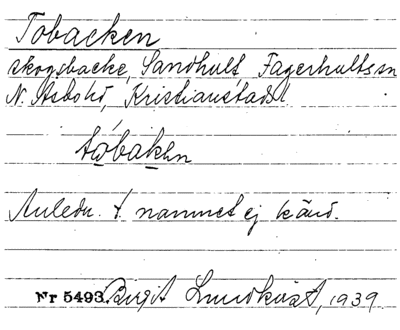 Tobacken
skogsbacke, Sandhult, Fagerhults sn
N. Åsbo hd, Kristianstads l
tòbakən
Anledn. t. namnet ej känd.
Nr 5493. Birgit Lundkvist, 1939